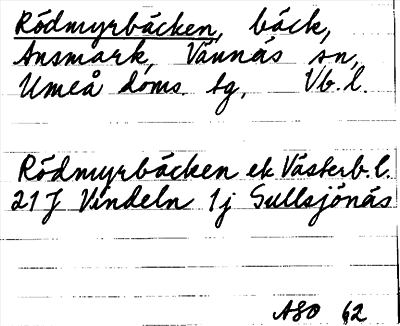 Rödmyrbäcken, bäck,
Ansmark, Vännäs sn,
Umeå doms. tg, Vb. l.
Rödmyrbäcken ek Västerb. l.
21J Vindeln 1j Gullsjönäs
ASO 62